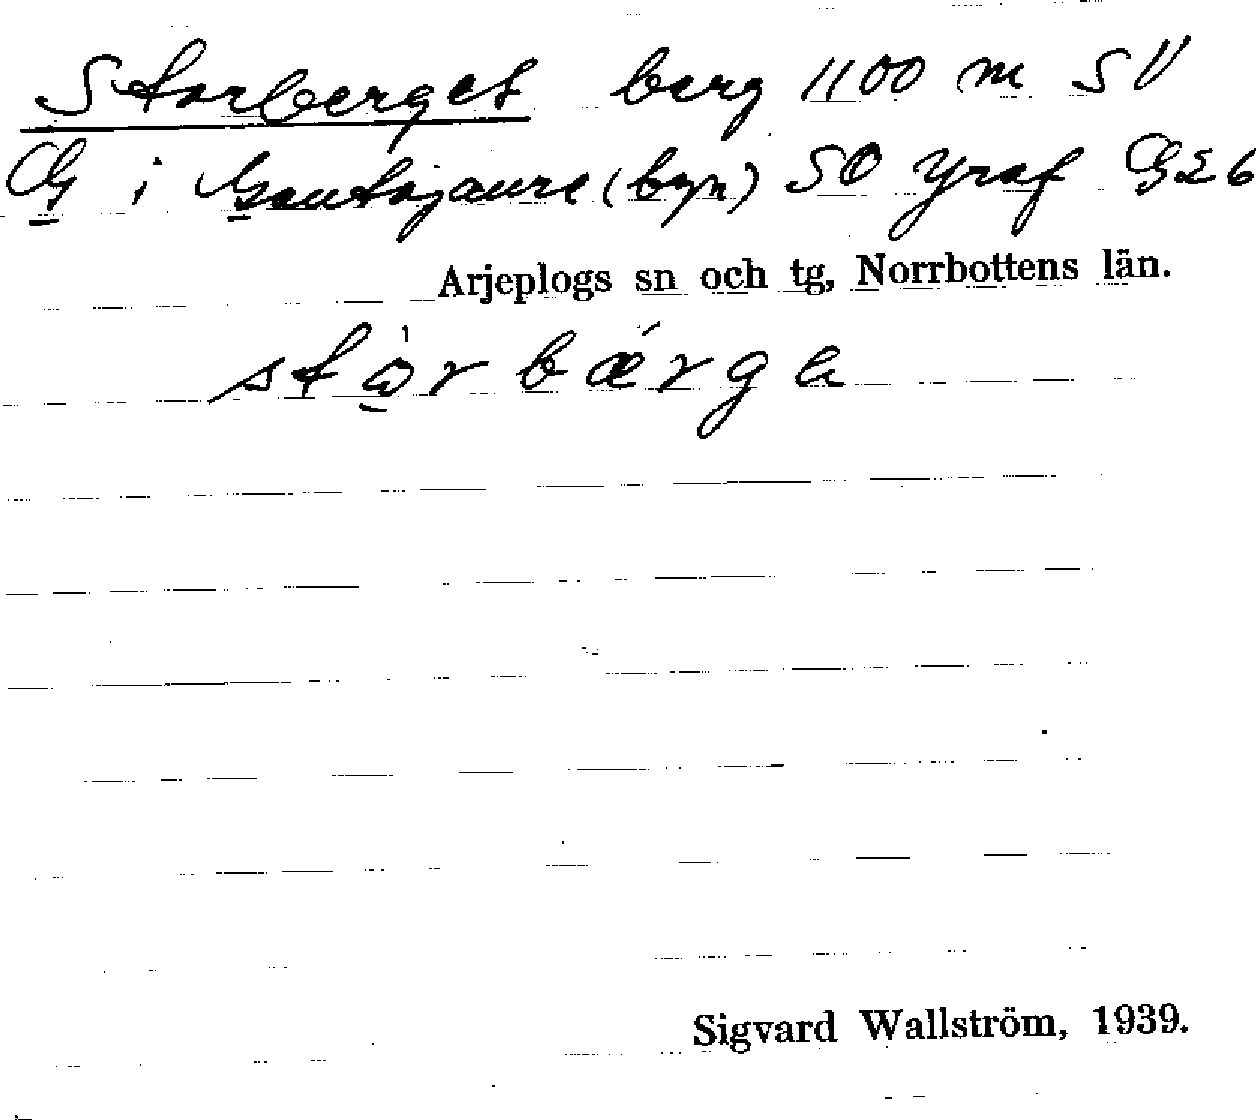 Storberget berg 1100 m SV
G i Gautojaure (byn) SO Yraf G26
Arjeplogs sn och tg, Norrbottens län.
stòrbǽrge
Sigvard Wallström, 1939.